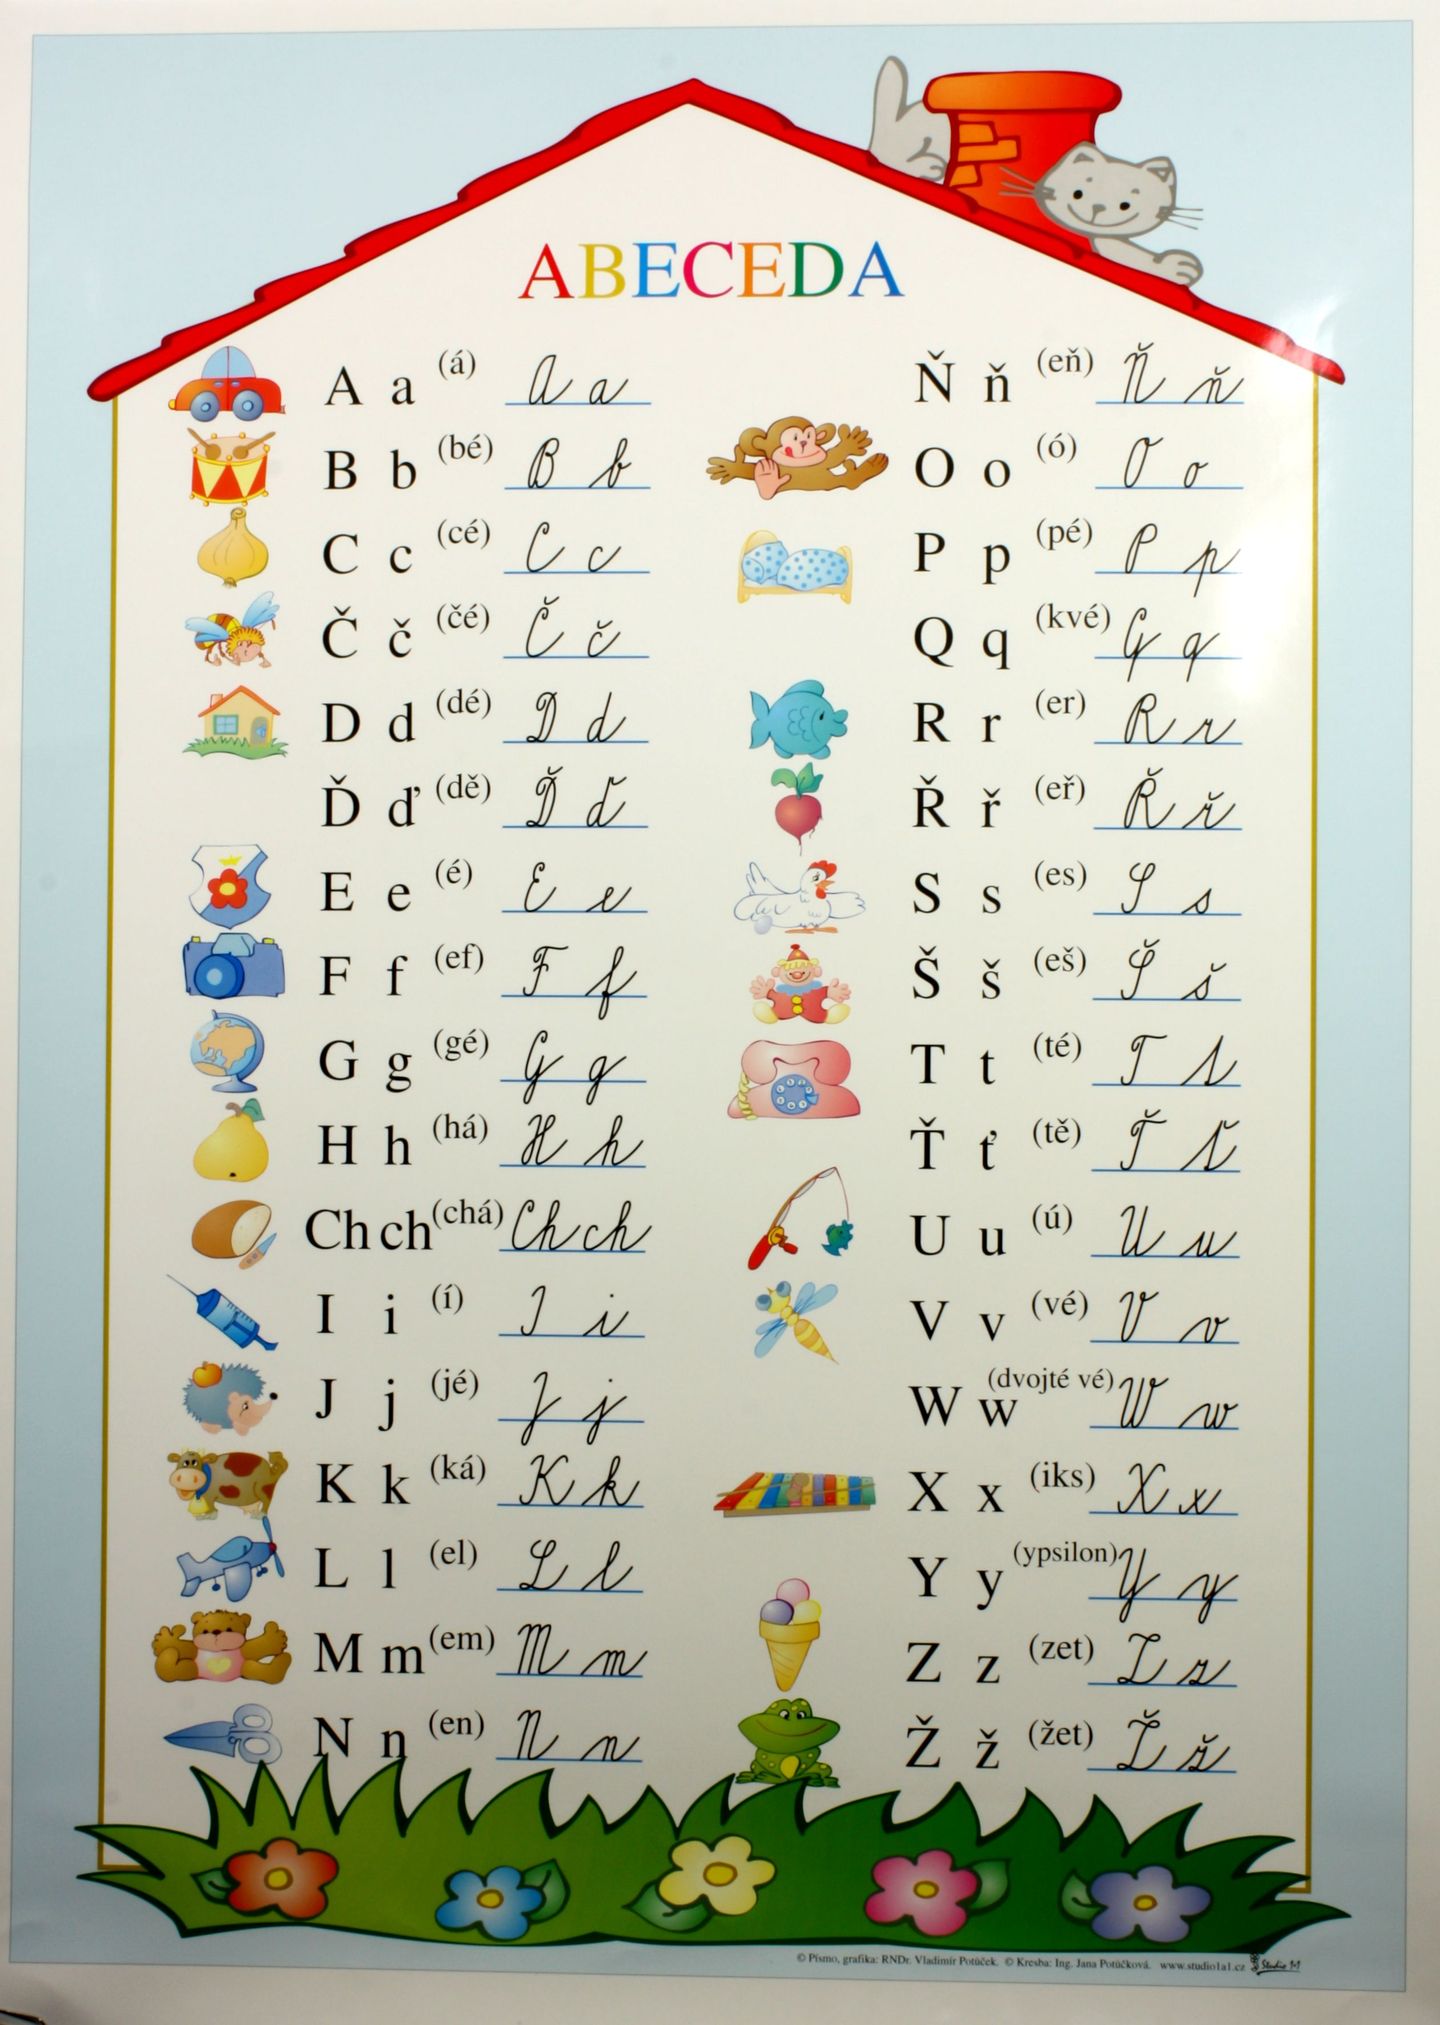 ABECEDA
A a (á) A a
B b (bé) B b
C c (cé) C c
Č č (čé) Č č
D d (dé) D d
Ď ď (dě) Ď ď
E e (é) E e
F f (ef) F f
G g (gé) G g
H h (há) H h
Ch ch (chá) Ch ch
I i (í) I i
J j (jé) J j
K k (ká) K k
L l (el) L l
M m (em) M m
N n (en) N n
Ň ň (eň) Ň ň
O o (ó) O o
P p (pé) P p
Q q (kvé) Q q
R r (er) R r
Ř ř (eř) Ř ř
S s (es) S s
Š š (eš) Š š
T t (té) T t
Ť ť (tě) Ť ť
U u (ú) U u
V v (vé) V v
W w (dvojté vé) W w
X x (iks) X x
Y y (ypsilon) Y y
Z z (zet) Z z
Ž ž (žet) Ž ž
© Písmo, grafika: RNDr. Vladimír Potůček. © Kresba: Ing. Jana Potůčková. www.studio1a1.cz Studio 1+1